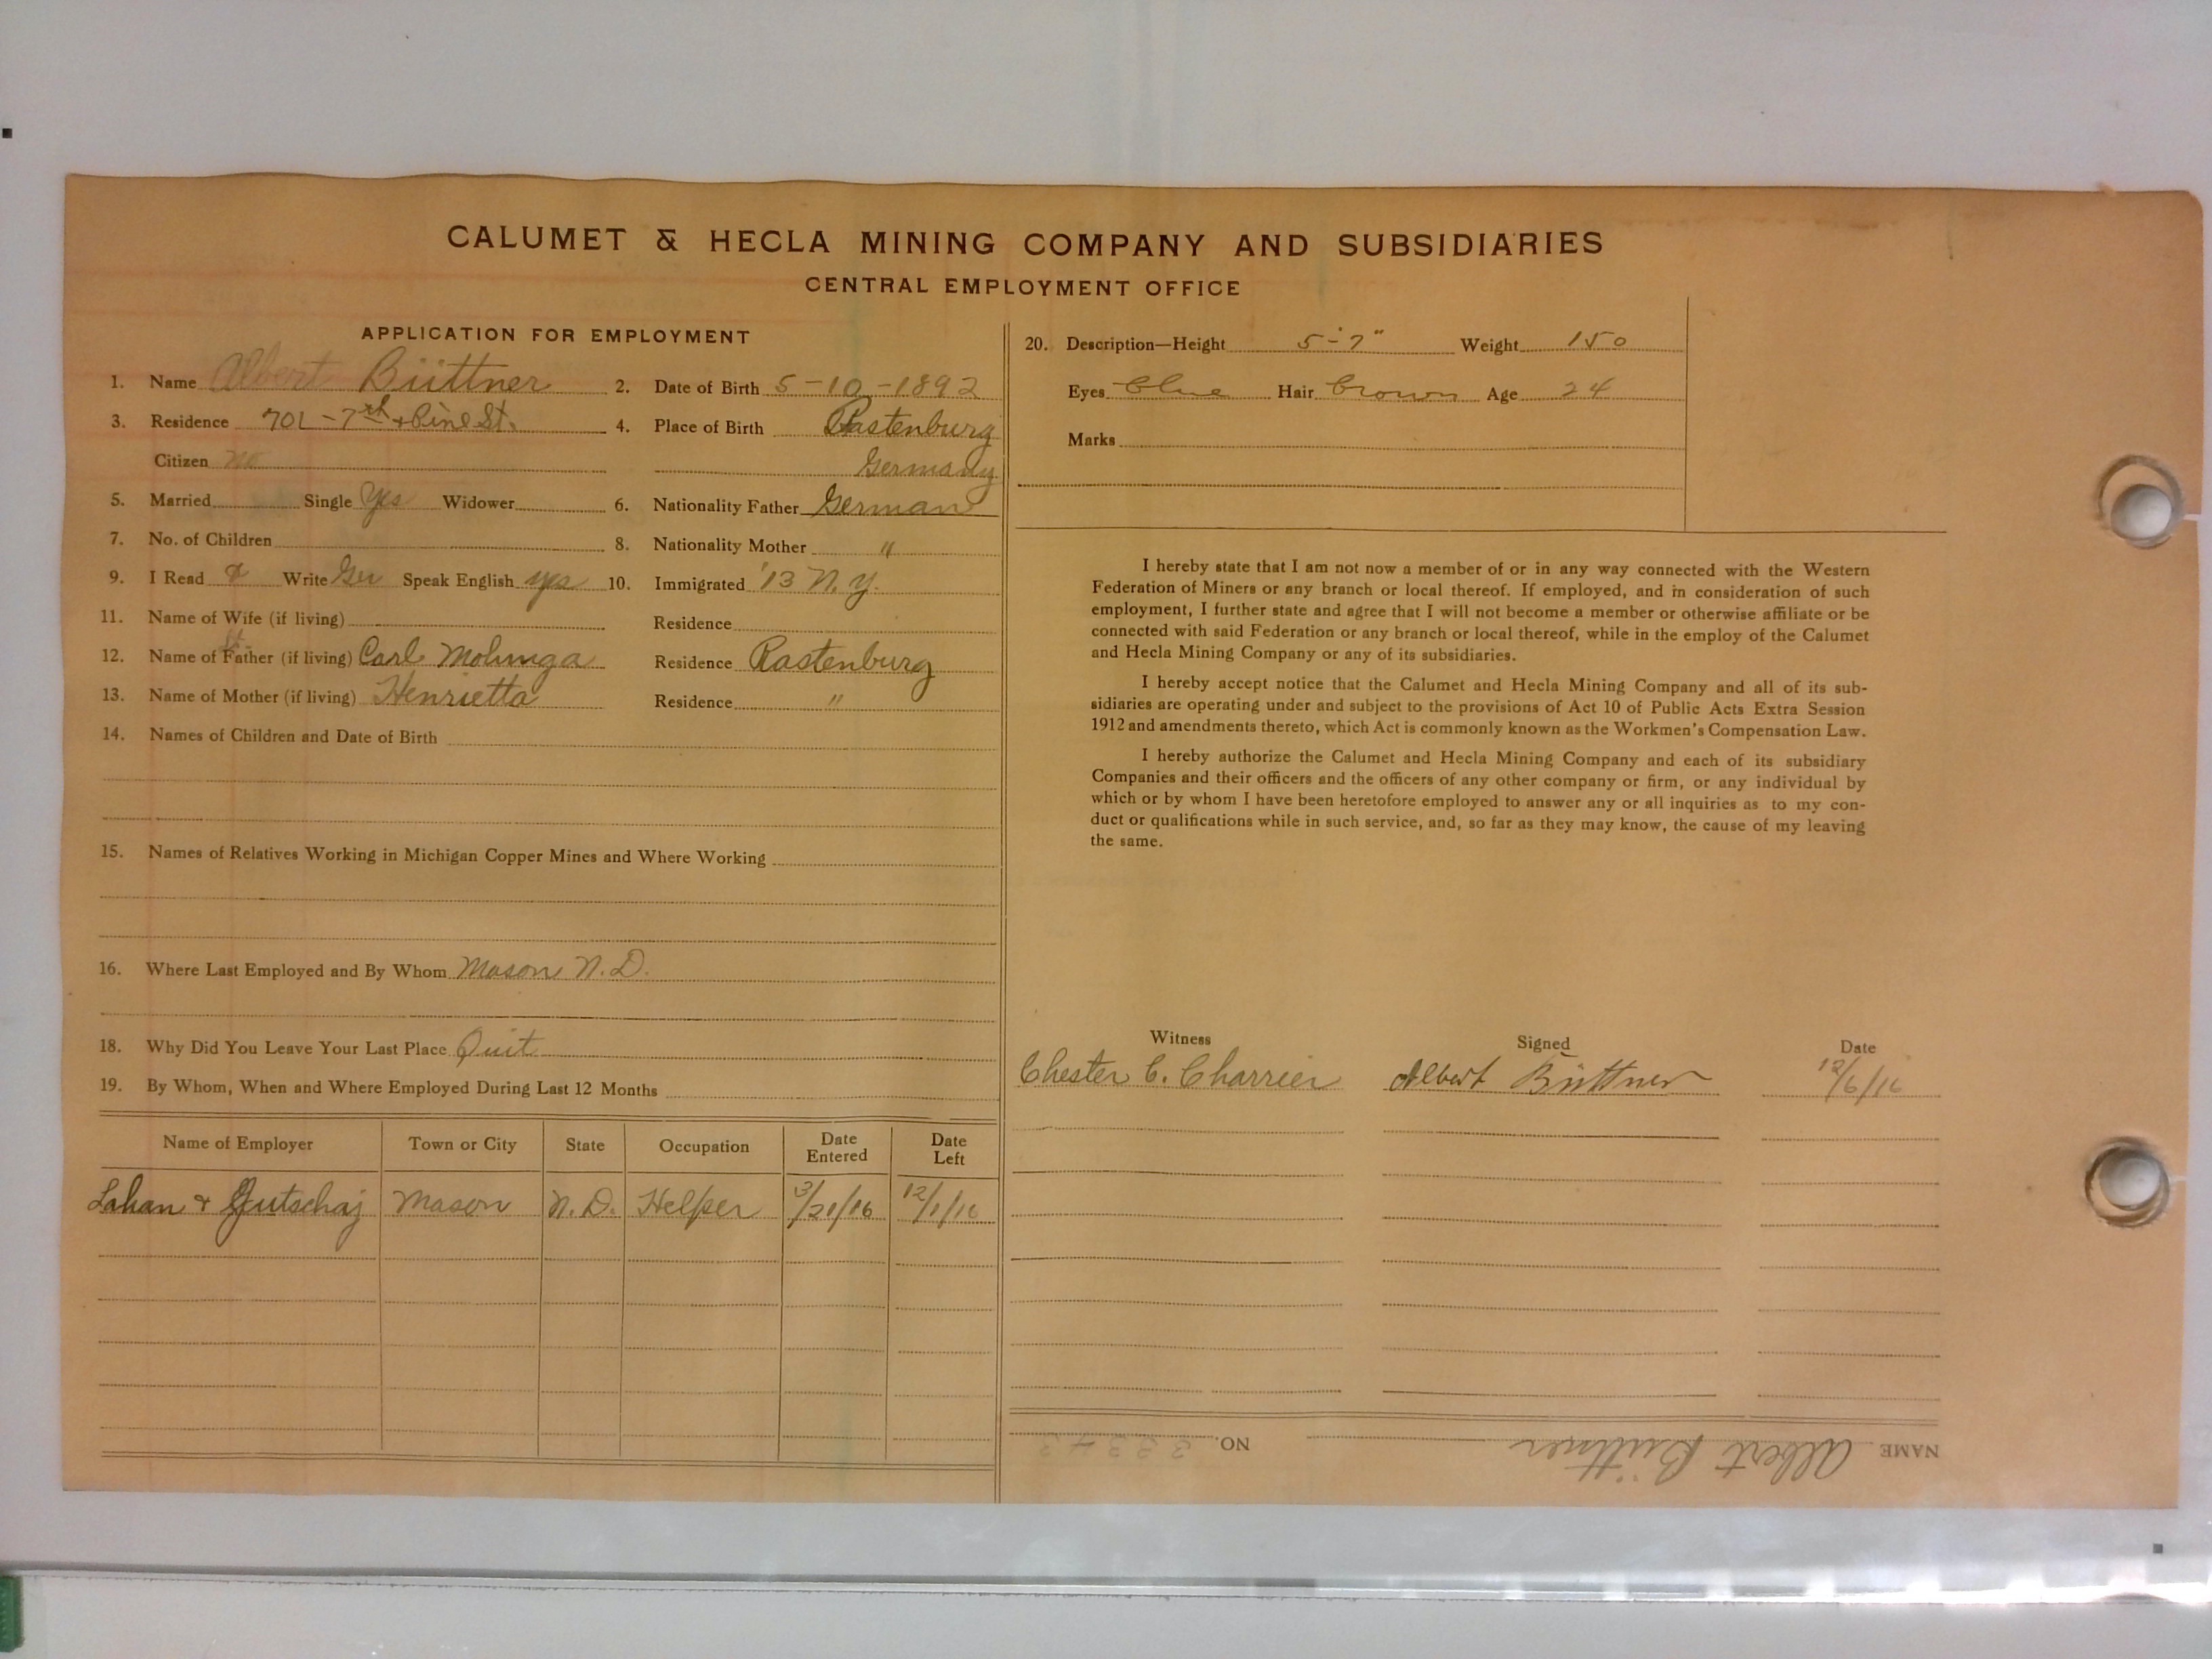 CALUMET & HECLA MINING COMPANY AND SUBSIDIARIES
CENTRAL EMPLOYMENT OFFICE
APPLICATION FOR EMPLOYMENT
1. Name Albert Büttner 2. Date of Birth 5-10-1892
3. Residence 701 - 7th + Pine St. 4. Place of Birth Rastenburg
Citizen no Germany
5. Married Single Yes Widower 6. Nationality Father German
7. No. of Children 8. Nationality Mother "
9. I Read & Write Ger Speak English yes 10. Immigrated '13 N.Y.
11. Name of Wife (if living) Residence
12. Name of St. Father (if living) Carl Mohnga Residence Rastenburg
13. Name of Mother (if living) Henrietta Residence "
14. Names of Children and Date of Birth
15. Names of Relatives Working in Michigan Copper Mines and Where Working
16. Where Last Employed and By Whom Mason N.D.
18. Why Did You Leave Your Last Place Quit
19. By Whom, When and Where Employed During Last 12 Months
Name of Employer Town or City State Occupation Date Entered Date Left
Lahan & Mason N.D. Helper 3/21/16 12/1/16
20. Description—Height 5'-7" Weight 150
Eyes blue Hair brown Age 24
Marks
I hereby state that I am not now a member of or in any way connected with the Western
Federation of Miners or any branch or local thereof. If employed, and in consideration of such
employment, I further state and agree that I will not become a member or otherwise affiliate or be
connected with said Federation or any branch or local thereof, while in the employ of the Calumet
and Hecla Mining Company or any of its subsidiaries.
I hereby accept notice that the Calumet and Hecla Mining Company and all of its sub-
sidiaries are operating under and subject to the provisions of Act 10 of Public Acts Extra Session
1912 and amendments thereto, which Act is commonly known as the Workmen's Compensation Law.
I hereby authorize the Calumet and Hecla Mining Company and each of its subsidiary
Companies and their officers and the officers of any other company or firm, or any individual by
which or by whom I have been heretofore employed to answer any or all inquiries as to my con-
duct or qualifications while in such service, and, so far as they may know, the cause of my leaving
the same.
Witness Signed Date
Chester C. Charrier Albert Büttner 12/6/16
NAME Albert Büttner NO.